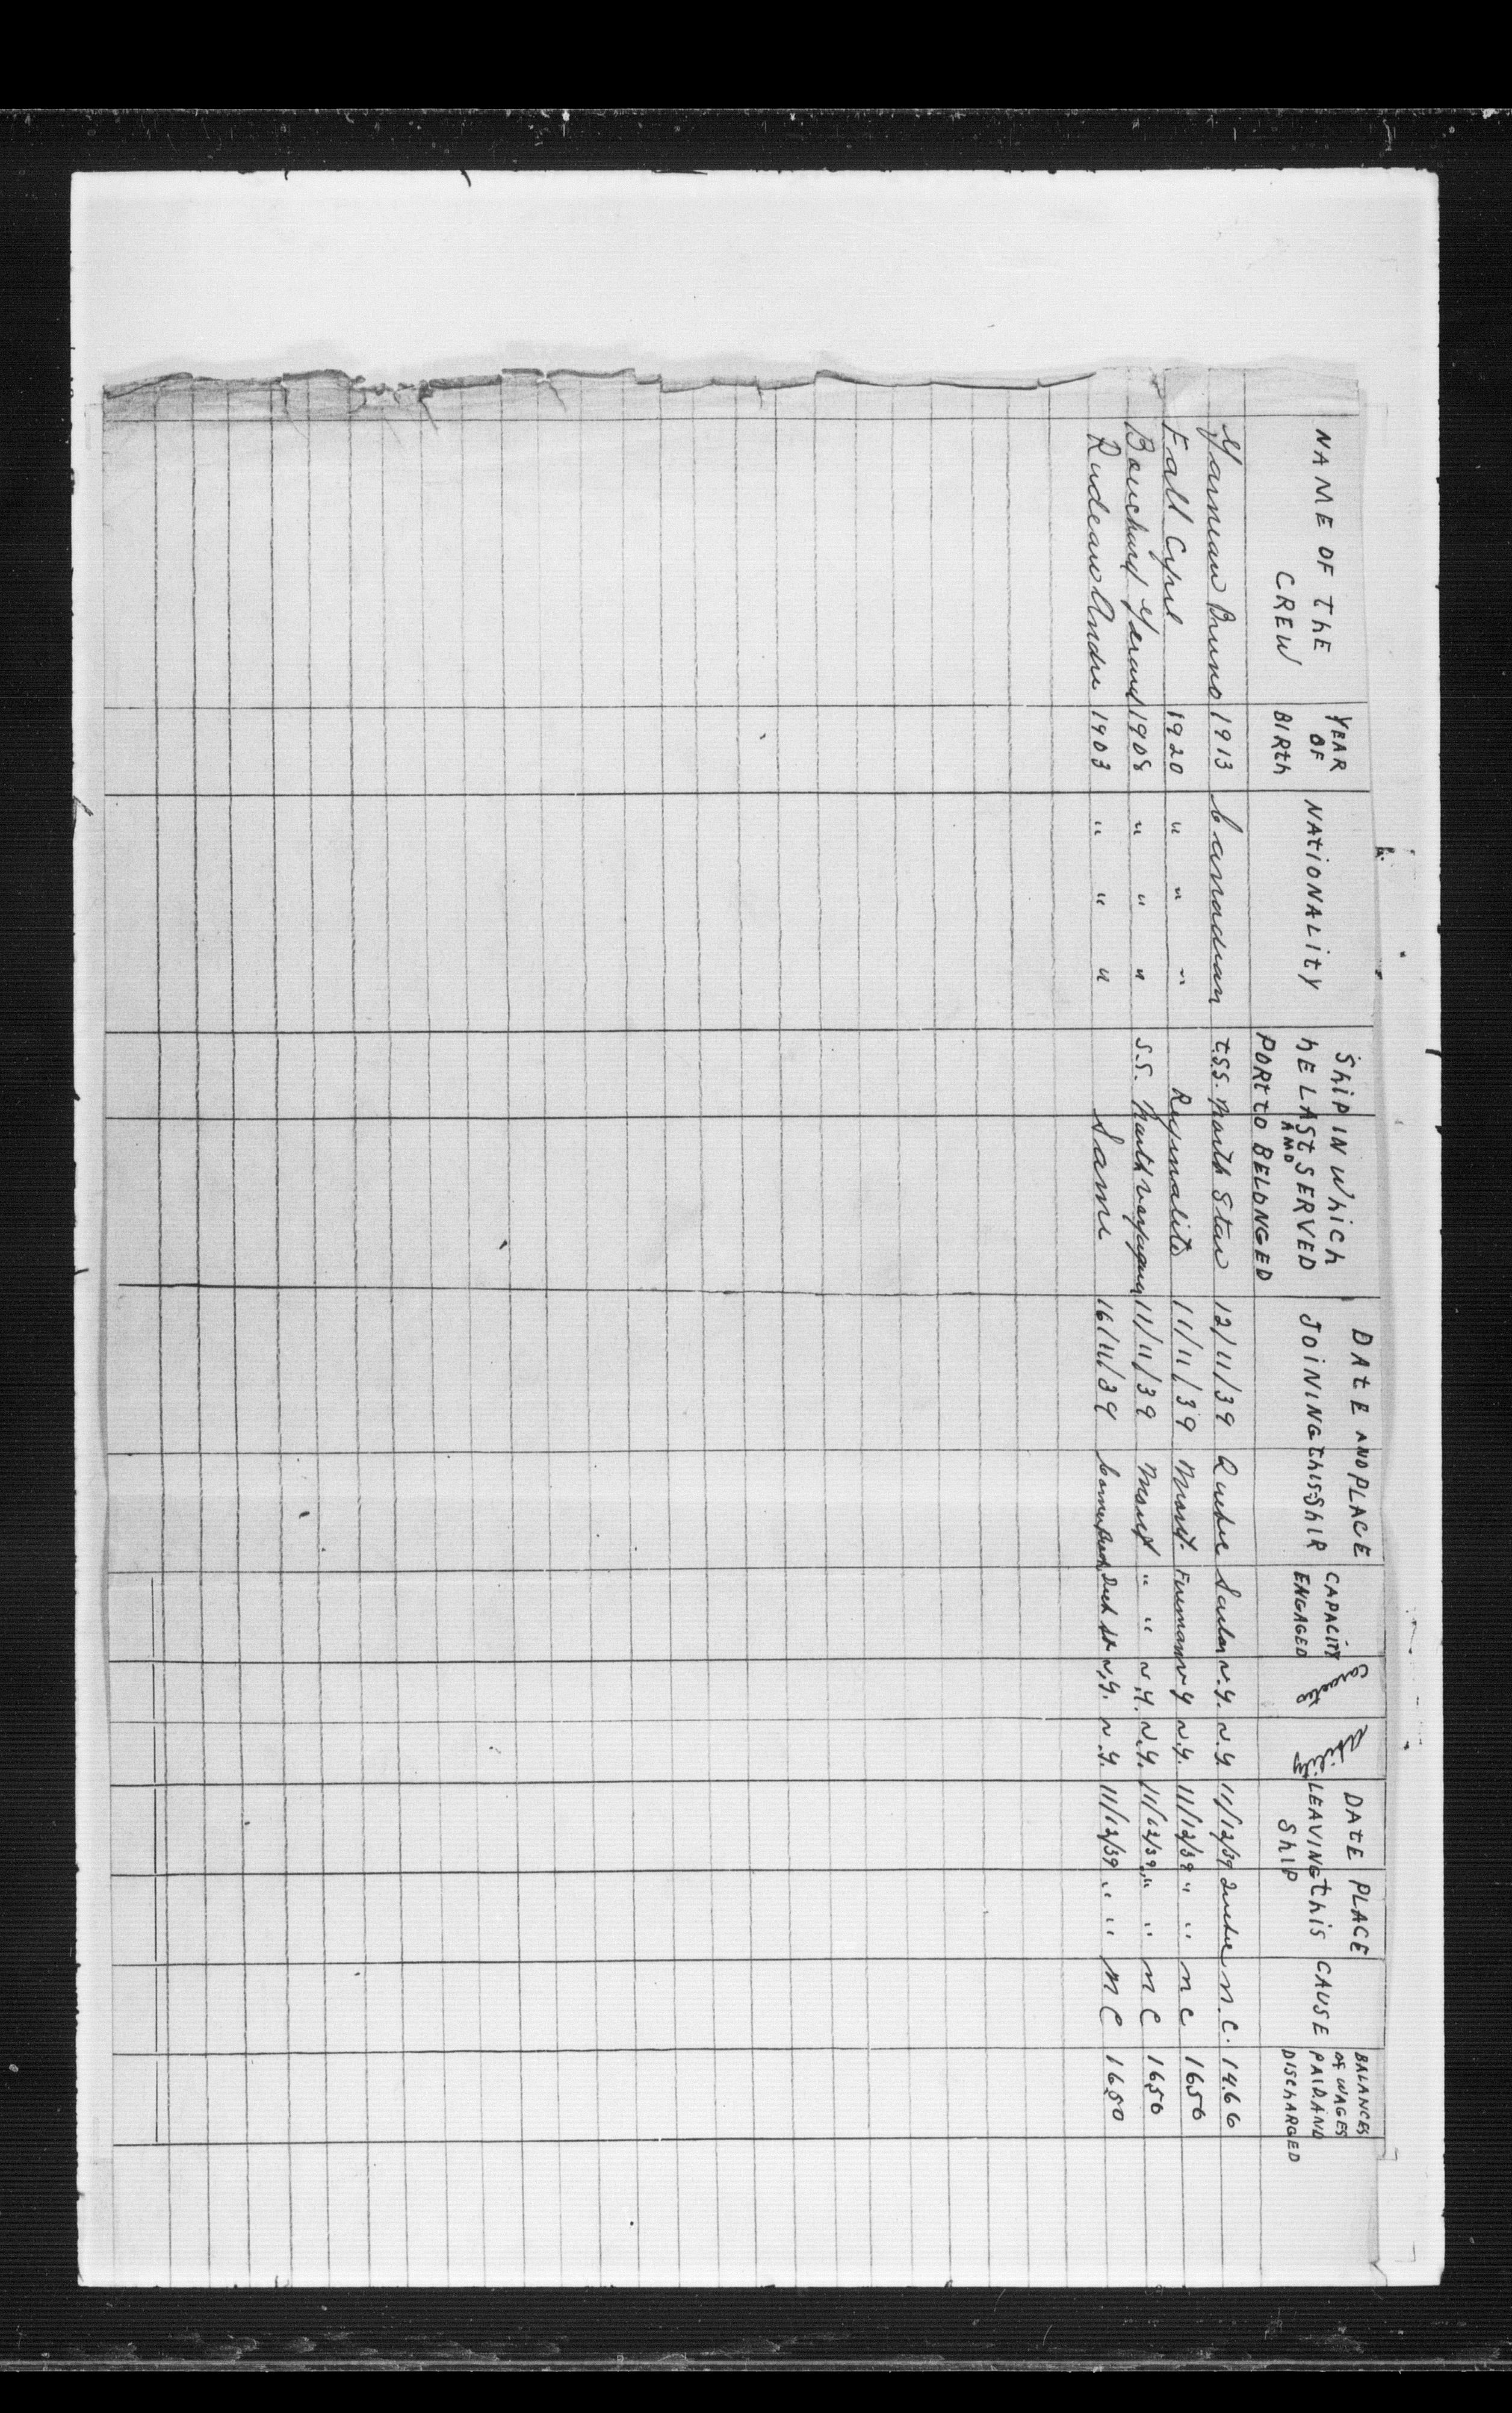 NAME OF THE CREW
YEAR OF BIRTH
NATIONALITY
SHIP IN WHICH HE LAST SERVED AND PORT TO BELONGED
DATE AND PLACE JOINING THIS SHIP
CAPACITY ENGAGED
Ability
DATE PLACE LEAVING THIS SHIP
CAUSE
BALANCES OF WAGES PAID AND DISCHARGED
Bruno 1913 Canadian T.S.S. North Star 12/11/39 Quebec Sailor v.g. v.g. 11/12/39 Quebec N.C. 14.66
Fall Cyril 1920 " " " 11/11/39 Mont. Fireman v g v.g. 11/12/39 " " N C 16.50
Bouchard Gerard 1908 " " " S.S. North 11/11/39 " " v.g. v.g. 11/12/39 " " N C 16.50
Rudeau Andre 1903 " " " Same 16/11/39 v.g. v.g. 11/12/39 " " N C 16.50